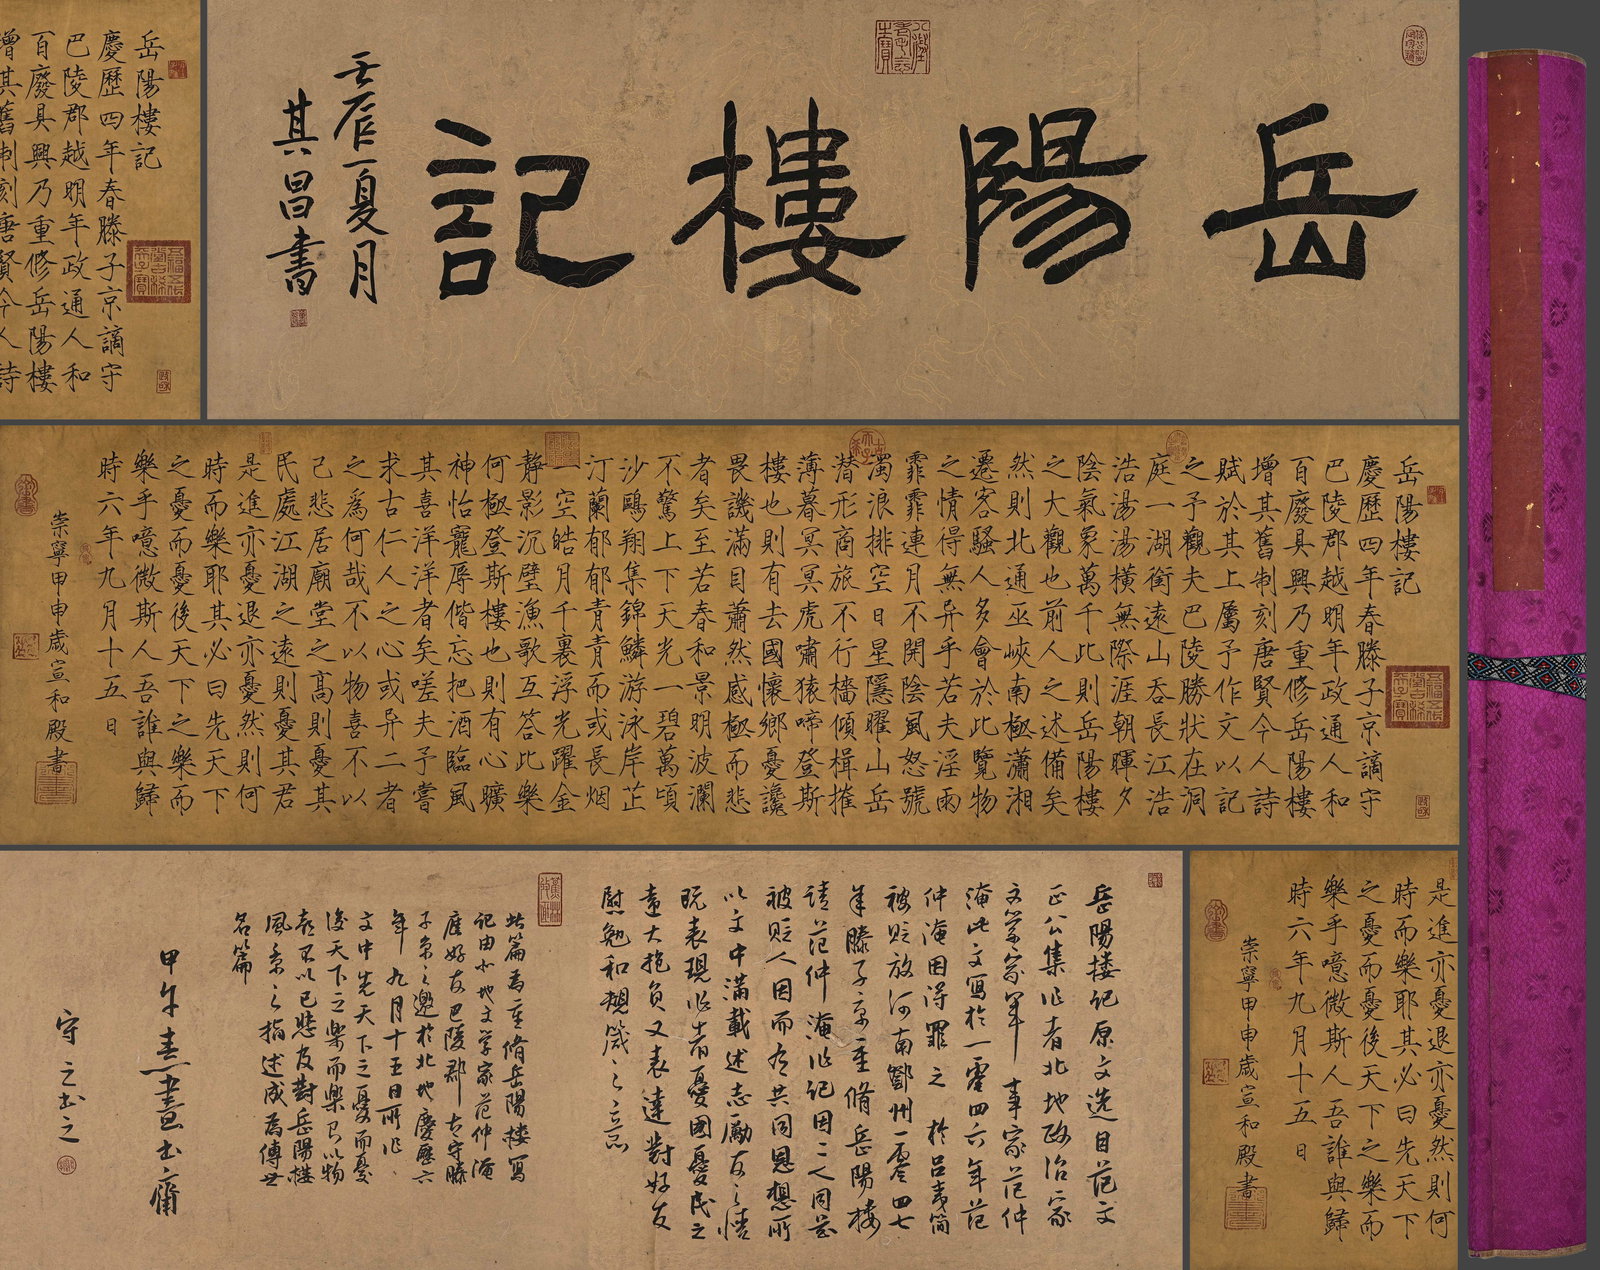 岳陽樓記
慶歷四年春滕子京謫守
巴陵郡越明年政通人和
百廢具興乃重修岳陽樓
增其舊制刻唐賢今人詩
岳陽樓記
壬辰夏月
其昌書
岳陽樓記
慶歷四年春滕子京謫守
巴陵郡越明年政通人和
百廢具興乃重修岳陽樓
增其舊制刻唐賢今人詩
賦於其上屬予作文以記
之予觀夫巴陵勝狀在洞
庭一湖銜遠山吞長江浩
浩湯湯橫無際涯朝暉夕
陰氣象萬千此則岳陽樓
之大觀也前人之述備矣
然則北通巫峽南極瀟湘
遷客騷人多會於此覽物
之情得無异乎若夫淫雨
霏霏連月不開陰風怒號
濁浪排空日星隱曜山岳
潛形商旅不行檣傾楫摧
薄暮冥冥虎嘯猿啼登斯
樓也則有去國懷鄉憂讒
畏譏滿目蕭然感極而悲
者矣至若春和景明波瀾
不驚上下天光一碧萬頃
沙鷗翔集錦鱗游泳岸芷
汀蘭郁郁青青而或長烟
一空皓月千裏浮光躍金
靜影沉璧漁歌互答此樂
何極登斯樓也則有心曠
神怡寵辱偕忘把酒臨風
其喜洋洋者矣嗟夫予嘗
求古仁人之心或异二者
之爲何哉不以物喜不以
己悲居廟堂之高則憂其
民處江湖之遠則憂其君
是進亦憂退亦憂然則何
時而樂耶其必曰先天下
之憂而憂後天下之樂而
樂乎噫微斯人吾誰與歸
時六年九月十五日
崇寧甲申歲宣和殿書
岳陽樓記原文選自范文
正公集作者北地政治家
文學家軍事家范仲
淹此文寫於一零四六年范
仲淹因得罪之於呂夷簡
被貶放河南鄧州一零四七
年滕子京重脩岳陽樓
請范仲淹作記因二人同是
被貶人因而有共同思想所
以文中滿載述志勵友之情
既表現作者憂國憂民之
遠大抱負又表達對好友
慰勉和規箴之意
此篇為重脩岳陽樓寫
記由北地文學家范仲淹
應好友巴陵郡太守滕
子京之邀於北地慶歷六
年九月十五日所作
文中先天下之憂而憂
後天下之樂而樂已以物
喜不以己悲及對岳陽樓
風景之描述成為傳世
名篇
甲午
守之書之
是進亦憂退亦憂然則何
時而樂耶其必曰先天下
之憂而憂後天下之樂而
樂乎噫微斯人吾誰與歸
時六年九月十五日
崇寧甲申歲宣和殿書